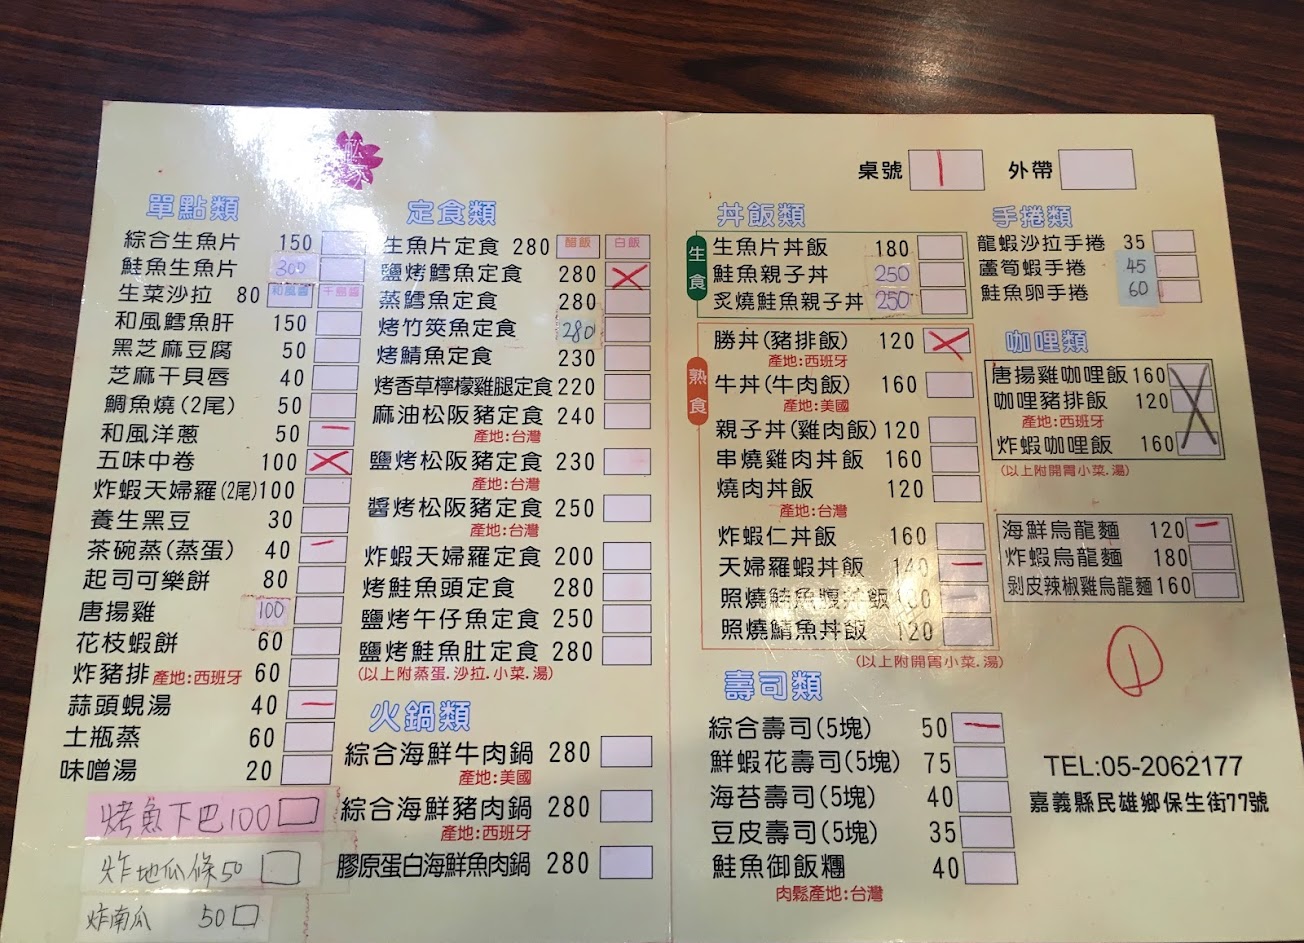 松家
桌號 外帶
單點類
綜合生魚片 150
鮭魚生魚片 300
生菜沙拉 80 和風醬 千島醬
和風鱈魚肝 150
黑芝麻豆腐 50
芝麻干貝唇 40
鯛魚燒(2尾) 50
和風洋蔥 50
五味中卷 100
炸蝦天婦羅(2尾)100
養生黑豆 30
茶碗蒸(蒸蛋) 40
起司可樂餅 80
唐揚雞 100
花枝蝦餅 60
炸豬排 產地:西班牙 60
蒜頭蜆湯 40
土瓶蒸 60
味噌湯 20
烤魚下巴100
炸地瓜條50
炸南瓜 50
定食類
生魚片定食 280 醋飯 白飯
鹽烤鱈魚定食 280
蒸鱈魚定食 280
烤竹筴魚定食 280
烤鯖魚定食 230
烤香草檸檬雞腿定食 220
麻油松阪豬定食 240
產地:台灣
鹽烤松阪豬定食 230
產地:台灣
醬烤松阪豬定食 250
產地:台灣
炸蝦天婦羅定食 200
烤鮭魚頭定食 280
鹽烤午仔魚定食 250
鹽烤鮭魚肚定食 280
(以上附蒸蛋.沙拉.小菜.湯)
火鍋類
綜合海鮮牛肉鍋 280
產地:美國
綜合海鮮豬肉鍋 280
產地:西班牙
膠原蛋白海鮮魚肉鍋 280
丼飯類
生食
生魚片丼飯 180
鮭魚親子丼 250
炙燒鮭魚親子丼 250
熟食
勝丼(豬排飯) 120
產地:西班牙
牛丼(牛肉飯) 160
產地:美國
親子丼(雞肉飯) 120
串燒雞肉丼飯 160
燒肉丼飯 120
產地:台灣
炸蝦仁丼飯 160
天婦羅蝦丼飯 140
照燒鮭魚腹丼飯
照燒鯖魚丼飯 120
(以上附開胃小菜.湯)
壽司類
綜合壽司(5塊) 50
鮮蝦花壽司(5塊) 75
海苔壽司(5塊) 40
豆皮壽司(5塊) 35
鮭魚御飯糰 40
肉鬆產地:台灣
手捲類
龍蝦沙拉手捲 35
蘆筍蝦手捲 45
鮭魚卵手捲 60
咖哩類
唐揚雞咖哩飯 160
咖哩豬排飯 120
產地:西班牙
炸蝦咖哩飯 160
(以上附開胃小菜.湯)
海鮮烏龍麵 120
炸蝦烏龍麵 180
剝皮辣椒雞烏龍麵 160
TEL:05-2062177
嘉義縣民雄鄉保生街77號